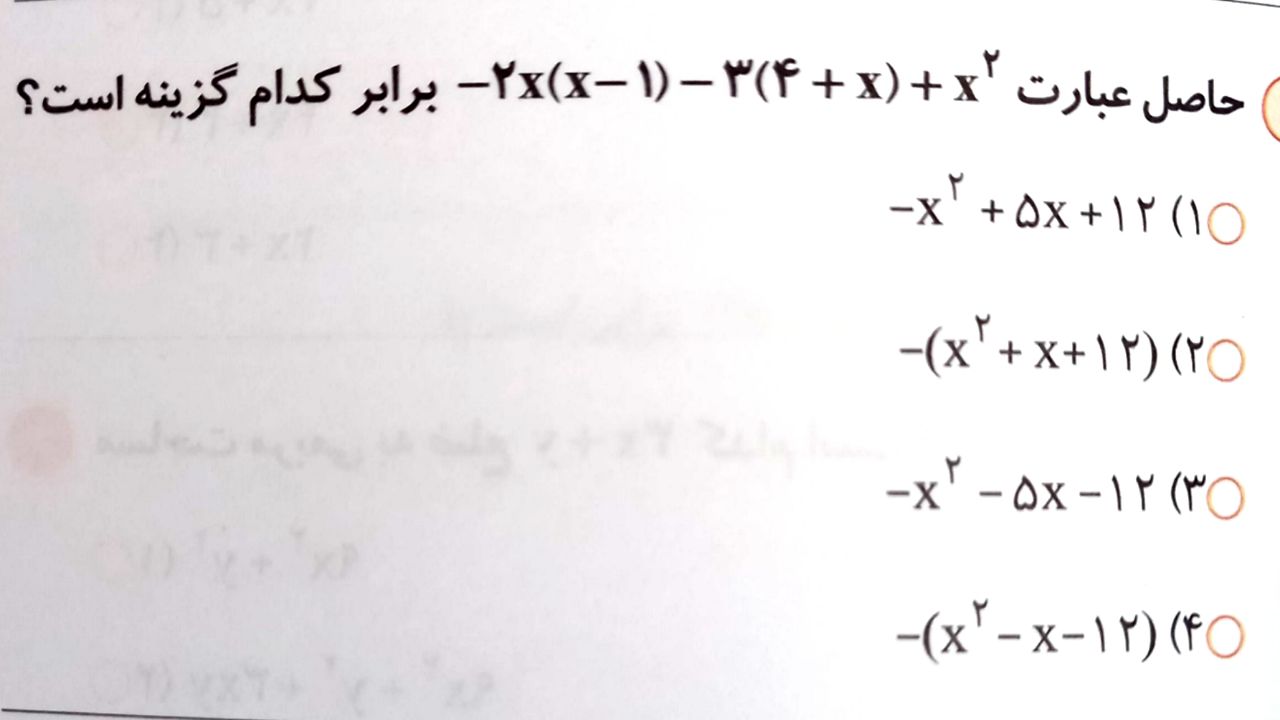 حاصل عبارت −۲x(x−۱)−۳(۴+x)+x۲ برابر کدام گزینه است؟
۱) −x۲ +۵x+۱۲
۲) −(x۲+x+۱۲)
۳) −x۲ −۵x−۱۲
۴) −(x۲−x−۱۲)